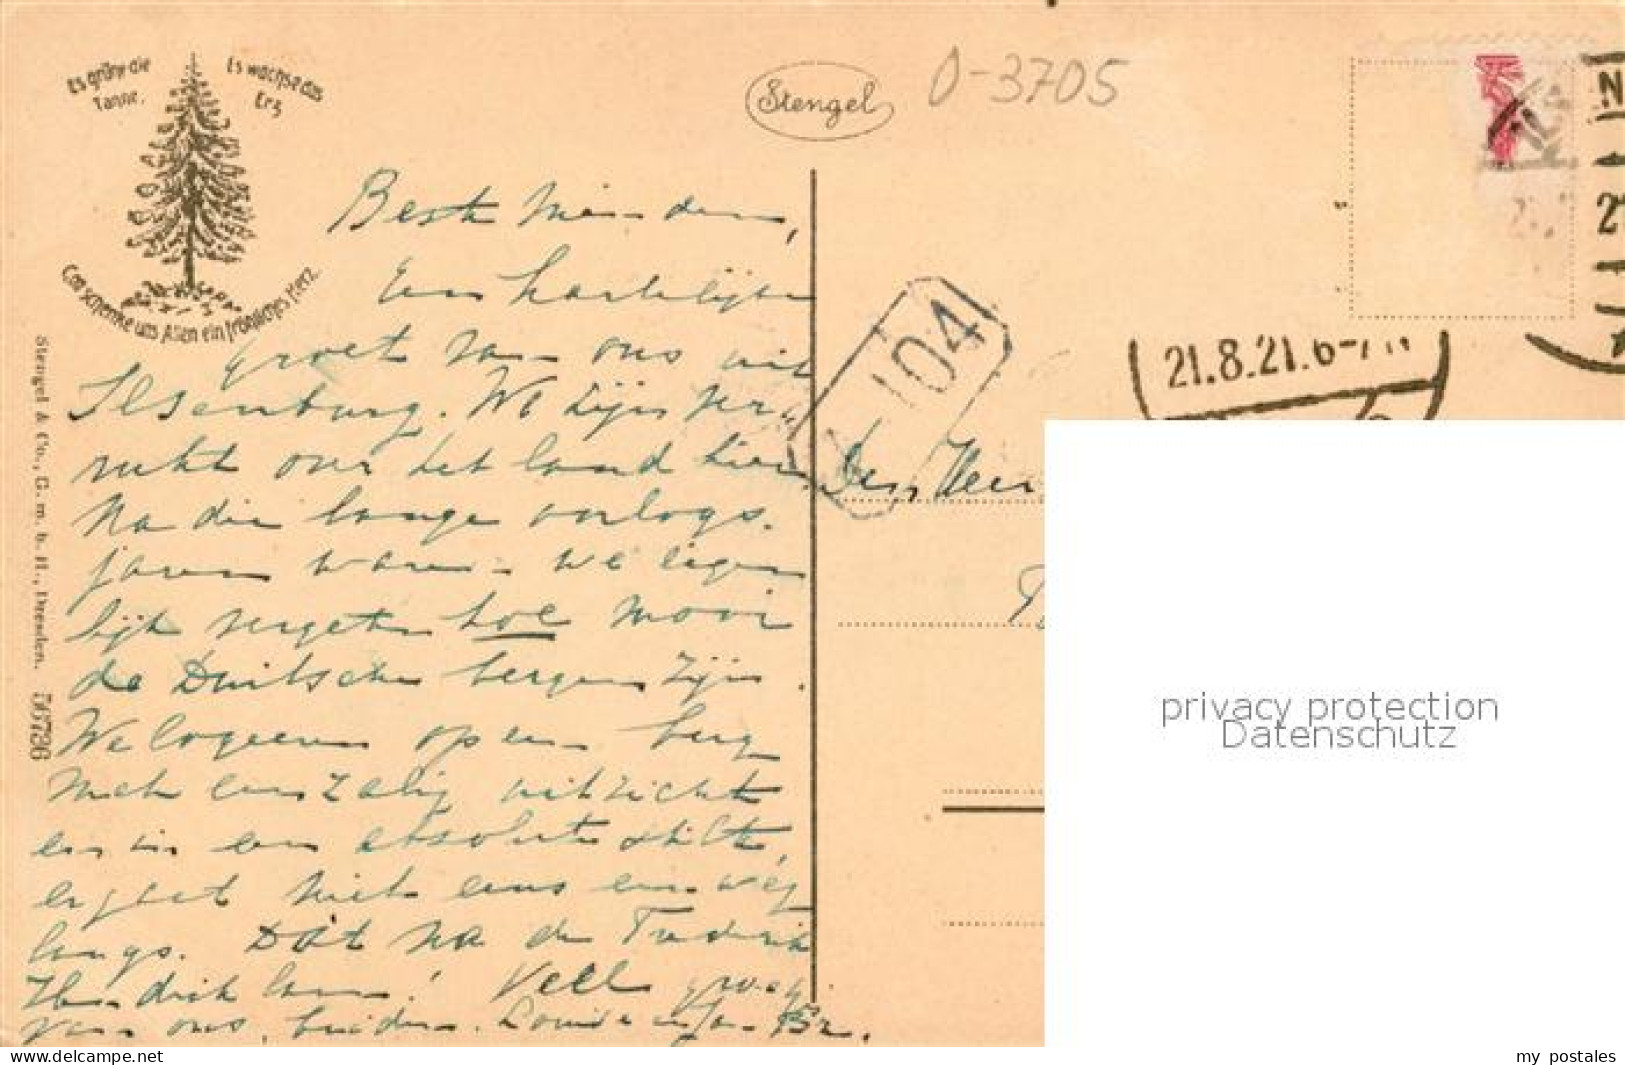 Es grüne die
Tanne,
Es wachse das
Erz
Gott schenke uns Allen ein fröhliches Herz.
Stengel & Co., G. m. b. H., Dresden. 56796
Stengel
0-3705
104
21.8.21.6-7
Beste
Een hartelijke
groet van ons uit
Ilsenburg. We zijn ver-
rukt over het land hier.
Na die lange oorlogs-
jaren waren we eigen
lijk vergeten hoe mooi
de Duitsche bergen zijn.
We logeeren op een berg
met een zalig uitzicht
en in een absolute stilte,
er gaat niet eens een weg
langs. Dat na de Frederik
Hendriklaan! Veel
van ons beiden. Louise
Den Heer
privacy protection
Datenschutz
my postales